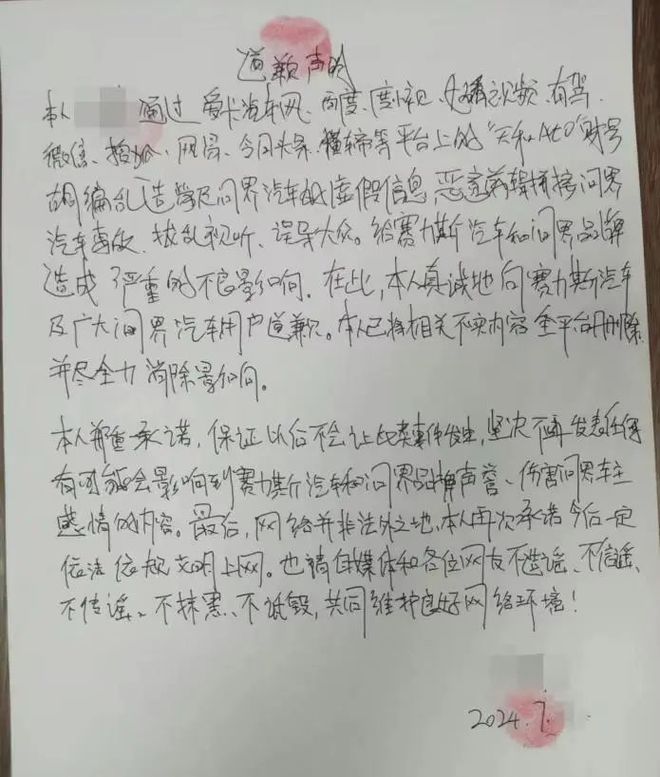 道歉声明
本人 通过爱卡汽车网、百度、度小视、好看视频、有驾、
微信、搜狐、网易、今日头条、懂车帝等平台上的“天和Auto”账号
胡编乱造涉及问界汽车的虚假信息,恶意剪辑拼接问界
汽车事故,扰乱视听、误导大众。给赛力斯汽车和问界品牌
造成了严重的不良影响。在此,本人真诚地向赛力斯汽车
及广大问界汽车用户道歉。本人已将相关不实内容全平台删除
并尽全力消除影响。
本人郑重承诺,保证以后不会让此类事件发生,坚决不再发表任何
有可能会影响到赛力斯汽车和问界品牌声誉、伤害问界车主
感情的内容。最后,网络并非法外之地,本人再次承诺今后一定
依法依规文明上网。也请自媒体和各位网友不造谣、不信谣、
不传谣、不抹黑、不诋毁,共同维护良好网络环境!
2024.7.